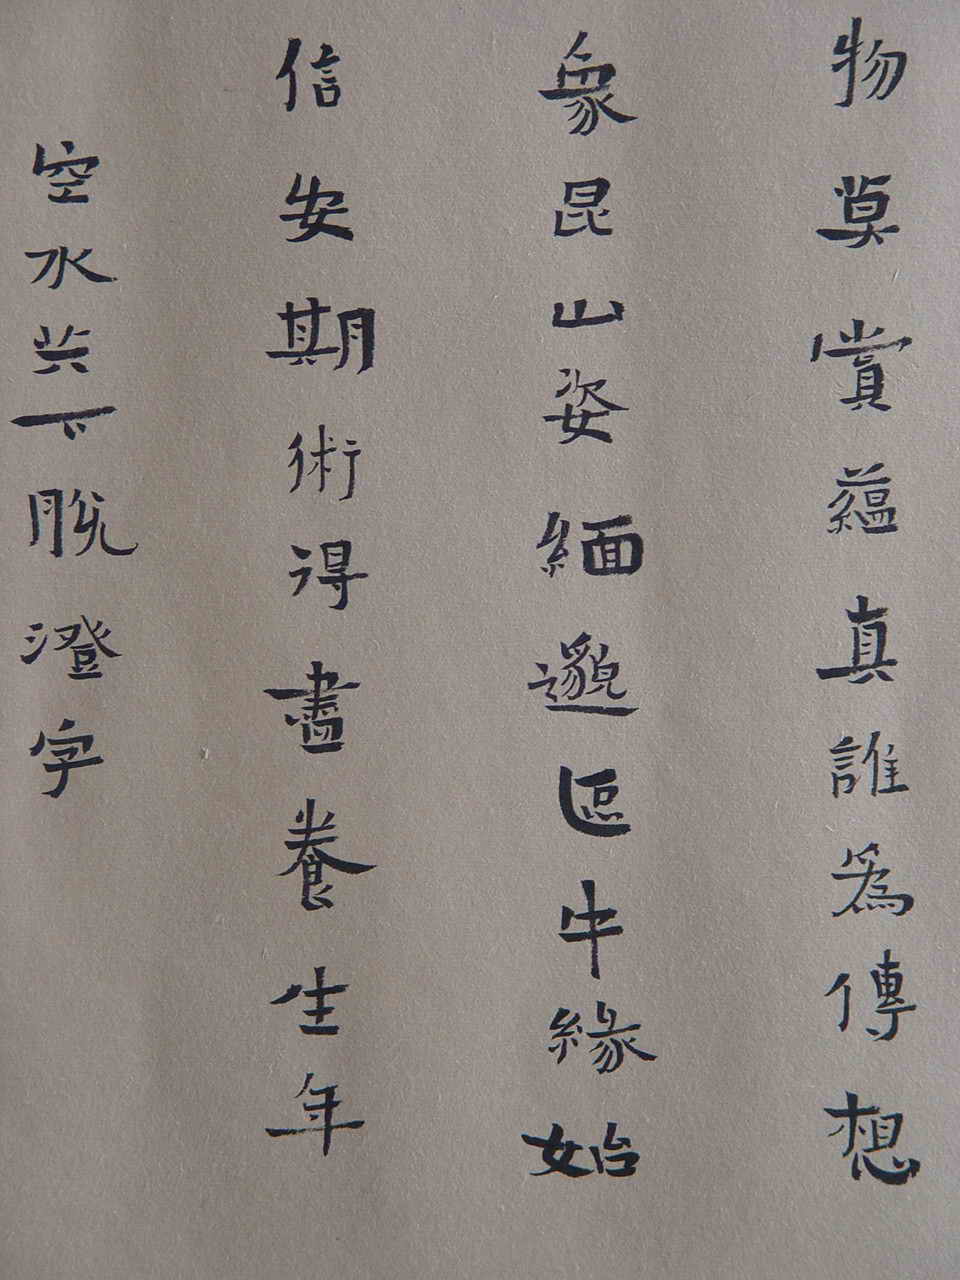 物莫賞蘊真誰爲傳想
象昆山姿緬邈區中緣始
信安期術得盡養生年
空水共下脫澄字